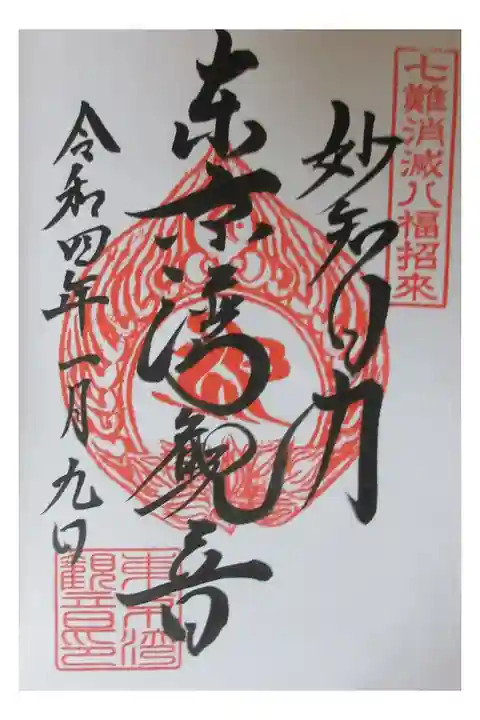 七難消滅八福招來
妙知力
東京湾観音
令和四年一月九日
東京湾
観音印